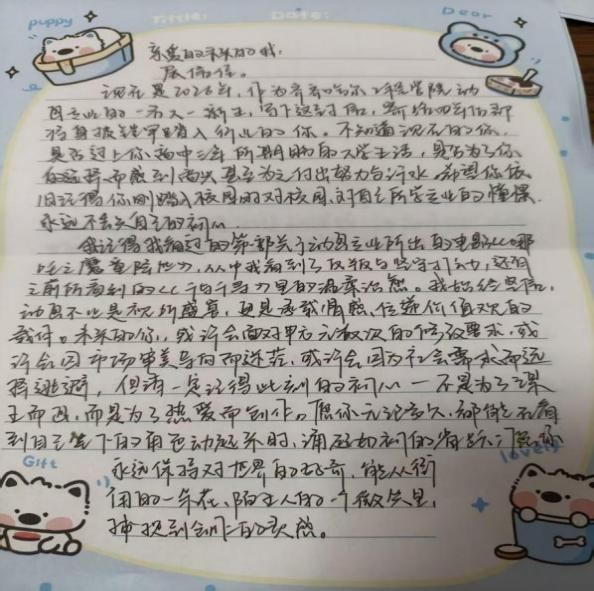 puppy
Tittle:
Date:
Dear
亲爱的未来的我:
展信佳。
现在是2026年,作为齐齐哈尔工程学院动
画专业的一名大一新生,写下这封信,寄给四年后即
将身披铠甲踏入行业的你。不知道现在的你,
是否过上你高中三年所期盼的大学生活,是否为了你
的选择而感到高兴甚至为之付出努力与汗水。希望你依
旧记得你刚踏入校园时对校园,对自己所学专业的憧憬
永远不丢失自己的初心
我记得我看过的第一部关于动画专业所出的电影《哪
吒之魔童降世》,从中我看到了反叛与坚守打动,还有
之前所看到的《千与千寻》里的温柔治愈。我始终坚信,
动画不止是视听盛宴,更是承载情感,传递价值观的
载体。未来的你,或许会面对甲方无数次的修改要求,或
许会因市场审美导向而迷茫,或许会因为社会需求而选
择逃避,但请一定记得此刻的初心—不是为了课
业而画,而是为了热爱而创作。愿你无论多久,都能在看
到自己笔下的角色动起来时,涌起如初的喜悦;愿你
永远保持对世界的好奇,能从街
角的一朵花,陌生人的一个微笑里,
捕捉到创作的灵感。
Gift
lovely